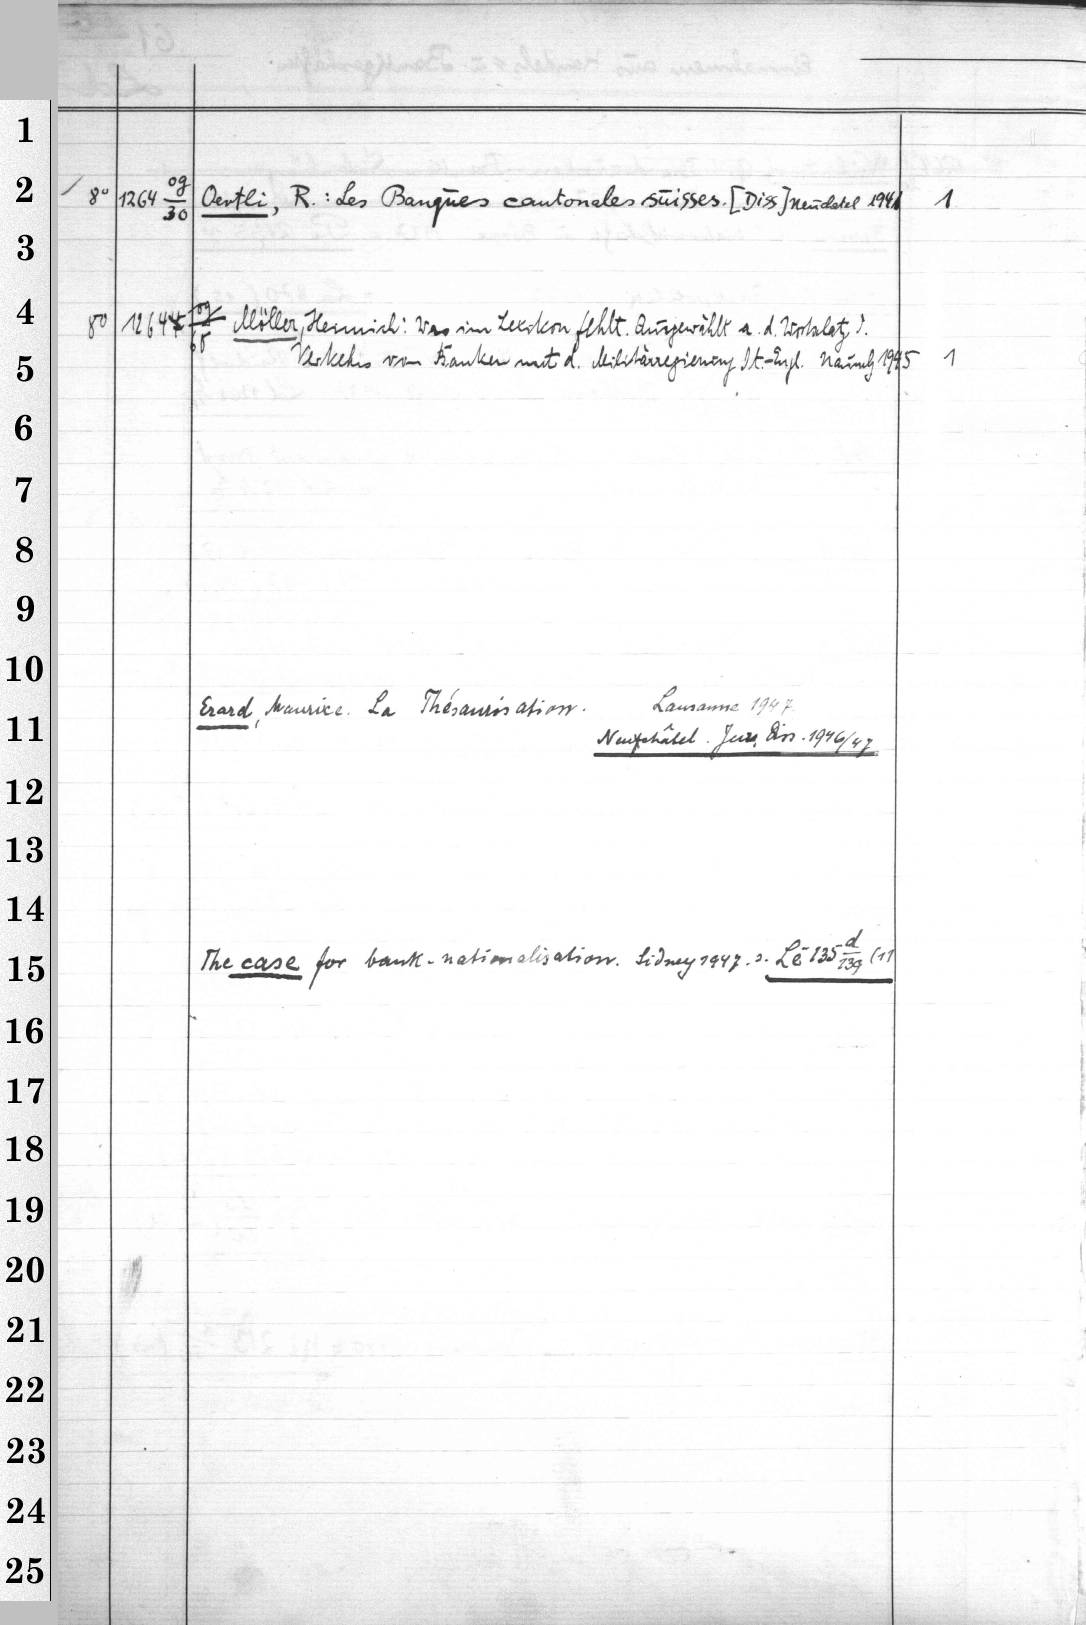 1
2 8° 1264 og/30 Oertli, R.: Les Banques cantonales suisses. [Diss] Neuchatel 1941 1
3
4 8° 1264 og/65 Möller, Heinrich: Was im Lexikon fehlt. Ausgewählt a. d. Wortschatz d.
5 Verkehrs von Banken mit d. Militärregierung Dt.-Engl. 1945 1
6
7
8
9
10
Erard, Maurice. La Thésaurisation. Lausanne 1947
11 Neufchâtel. Jur. Diss. 1946/47
12
13
14
15 The case for bank-nationalisation. Sidney 1947. s. Le 135 d/139 (11
16
17
18
19
20
21
22
23
24
25